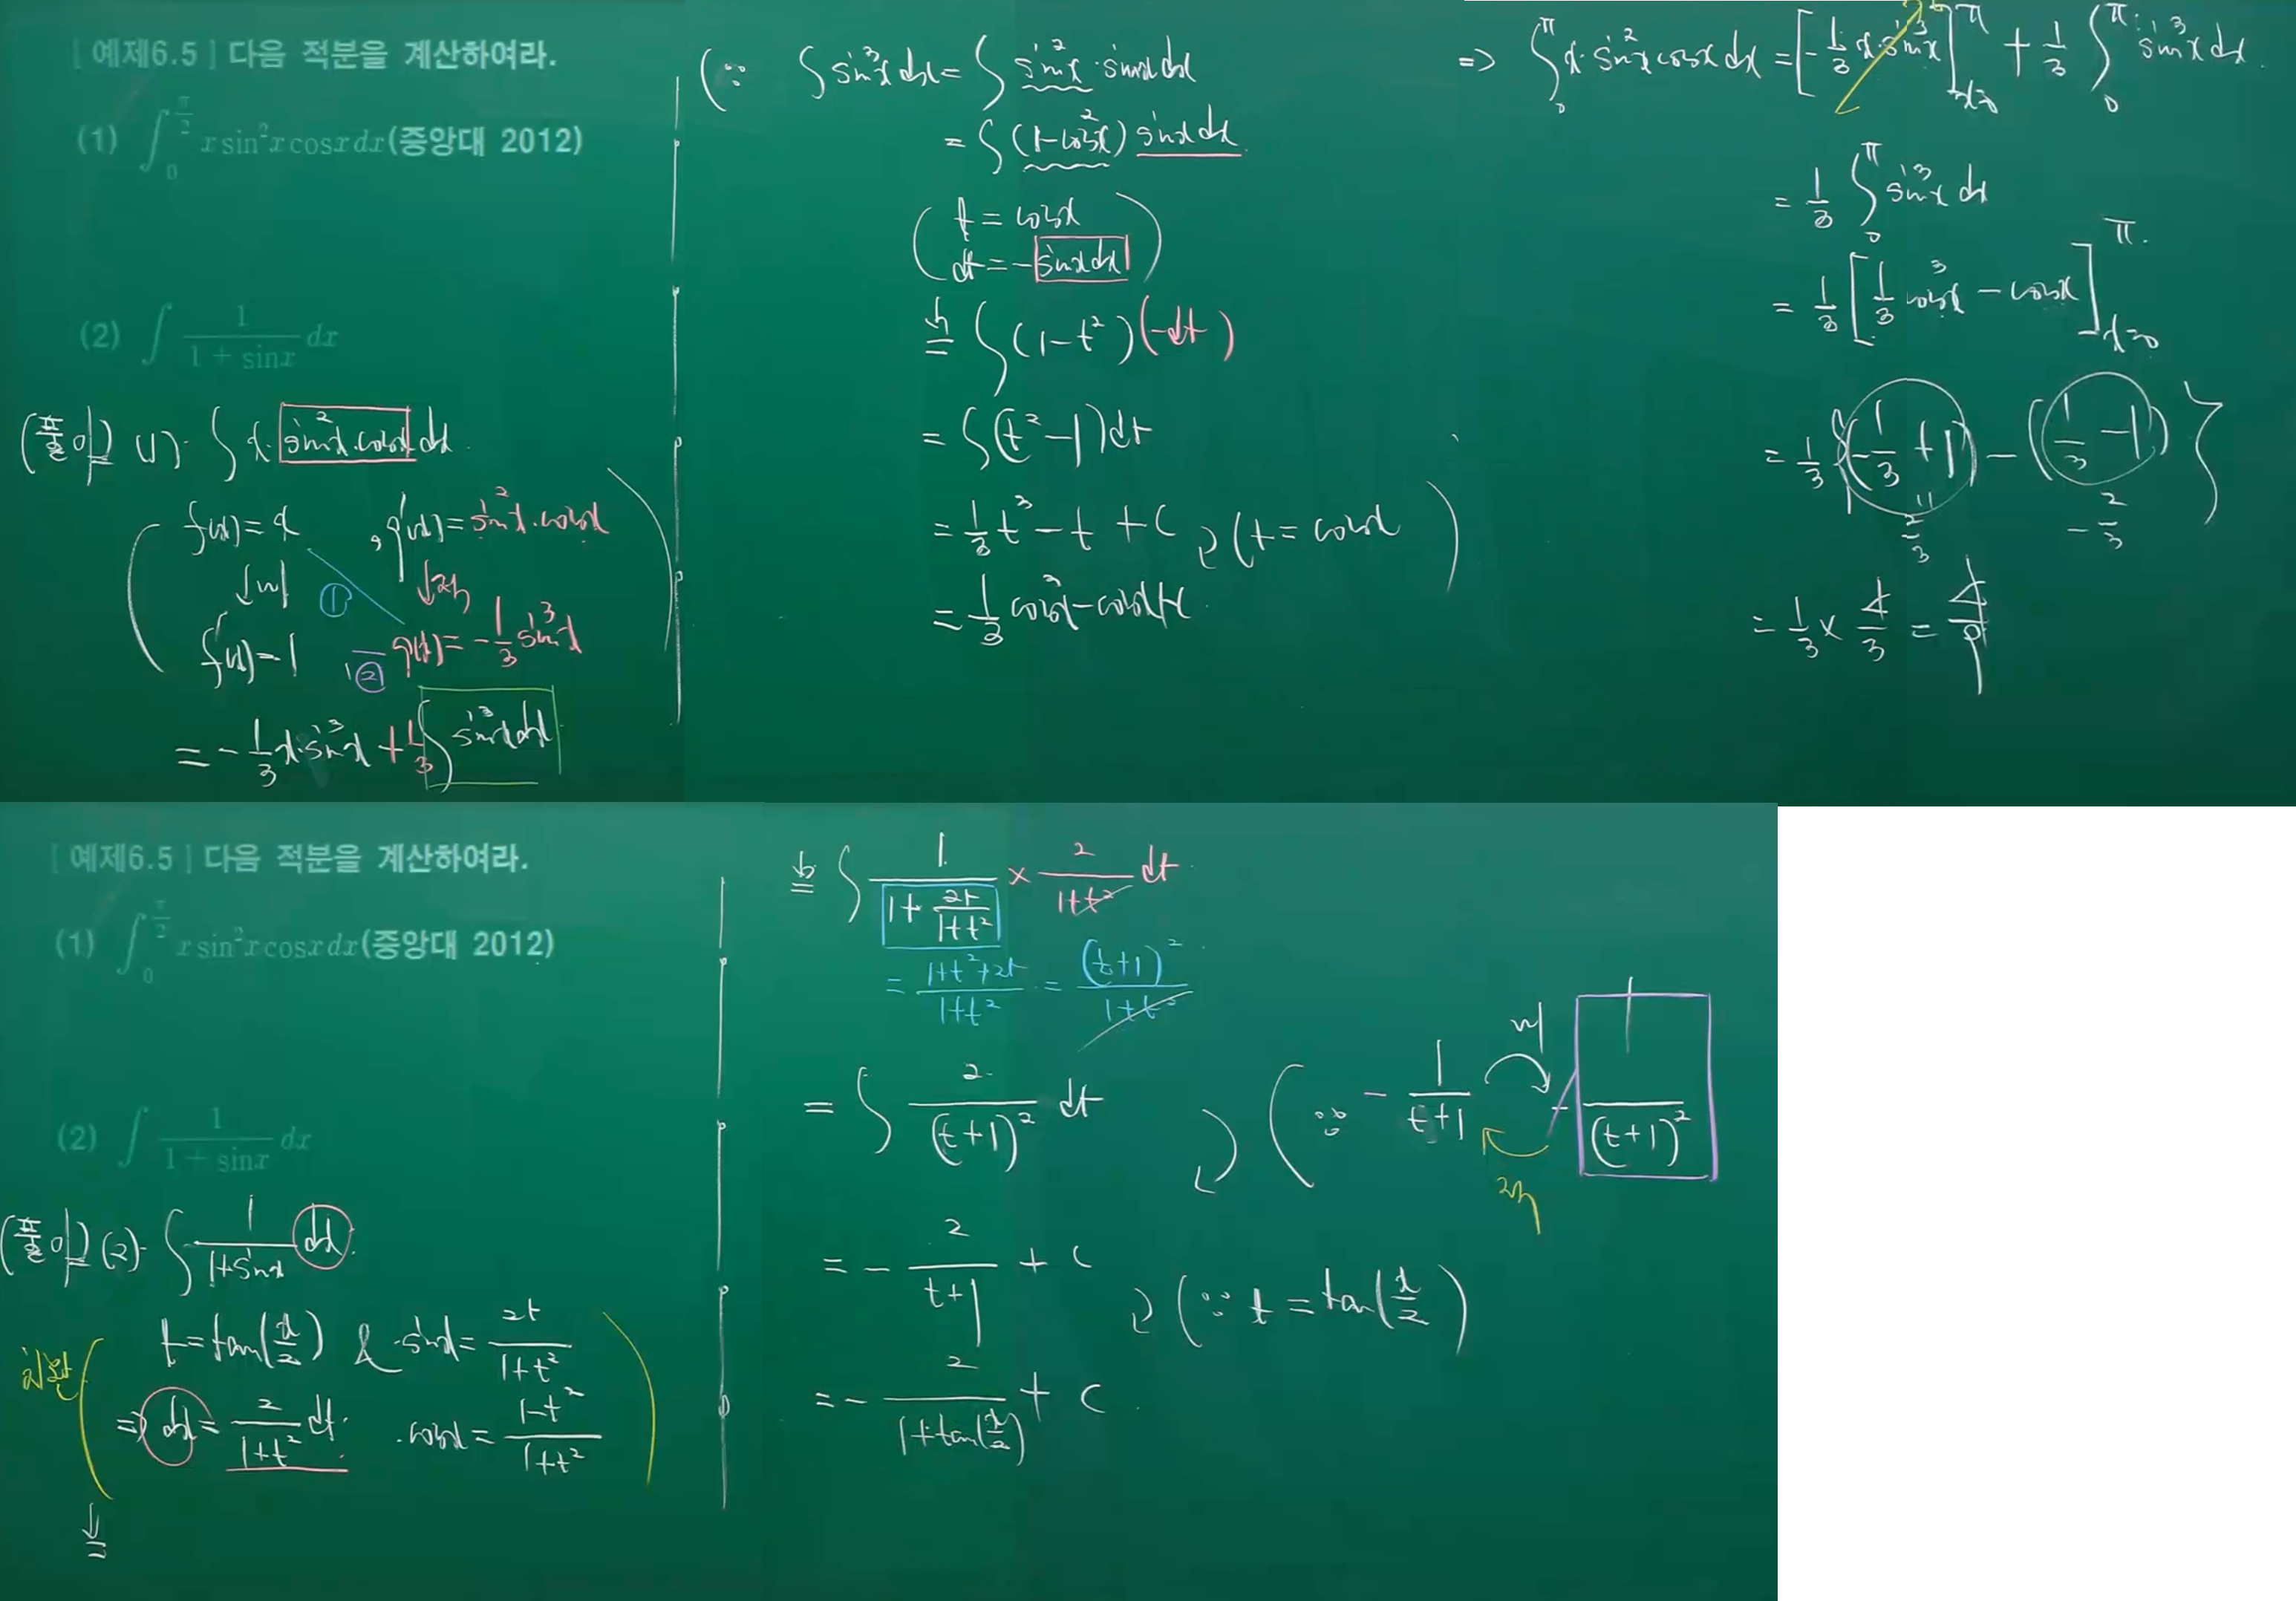 [ 예제6.5 ] 다음 적분을 계산하여라.
(1) ∫_0^{π/2} x sin²x cosx dx(중앙대 2012)
(2) ∫ 1/(1 + sinx) dx
(풀이) (1). ∫ x·sin²x·cosx dx
f(x) = x , g'(x) = sin²x·cosx
↓미 ① ↓적
f'(x) = 1 ② g(x) = -1/3 sin³x
= -1/3 x·sin³x + 1/3 ∫ sin³x dx
(∵ ∫ sin³x dx = ∫ sin²x · sinx dx
= ∫ (1-cos²x) sinx dx
( t = cosx
dt = -sinx dx )
= ∫ (1-t²)(-dt)
= ∫ (t²-1)dt
= 1/3 t³ - t + C (t = cosx)
= 1/3 cos³x - cosx + C
=> ∫_0^π x·sin²x cosx dx = [-1/3 x·sin³x]_{x=0}^π + 1/3 ∫_0^π sin³x dx.
= 1/3 ∫_0^π sin³x dx
= 1/3 [1/3 cos³x - cosx]_{x=0}^π.
= 1/3 {(-1/3 + 1) - (1/3 - 1)}
= 2/3
-2/3
= 1/3 × 4/3 = 4/9
[ 예제6.5 ] 다음 적분을 계산하여라.
(1) ∫_0^{π/2} x sin²x cosx dx(중앙대 2012)
(2) ∫ 1/(1 + sinx) dx
(풀이) (2). ∫ 1/(1+sinx) dx.
치환 ( t = tan(x/2) & ·sinx = 2t/(1+t²)
=> dx = 2/(1+t²) dt. ·cosx = (1-t²)/(1+t²) )
= ∫ 1/(1 + 2t/(1+t²)) × 2/(1+t²) dt.
= (1+t²+2t)/(1+t²) = (t+1)²/(1+t²)
= ∫ 2/(t+1)² dt (∵ -1/(t+1) 미 1/(t+1)²
적
= - 2/(t+1) + C (∵ t = tan(x/2))
= - 2/(1+tan(x/2)) + C.